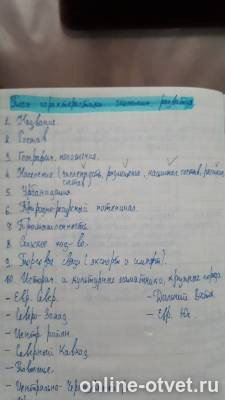 План характеристики экономич. развития
1. Название.
2. Состав
3. Географич. положение.
4. Население (численность, размещение, национал. состав, религия,
5. Урбанизация.
6. Природно-ресурсный потенциал.
7. Промышленность.
8. Сельское хоз-во.
9. Торговые связи (экспорт и импорт).
10. Историч. и культурные памятники, крупные города.
- Евр. Север.
- Дальний Восток
- Северо-Запад
- Евр. Юг.
- Центр. район
- Северный Кавказ
- Поволжье.
- Центрально-Черн
online-otvet.ru